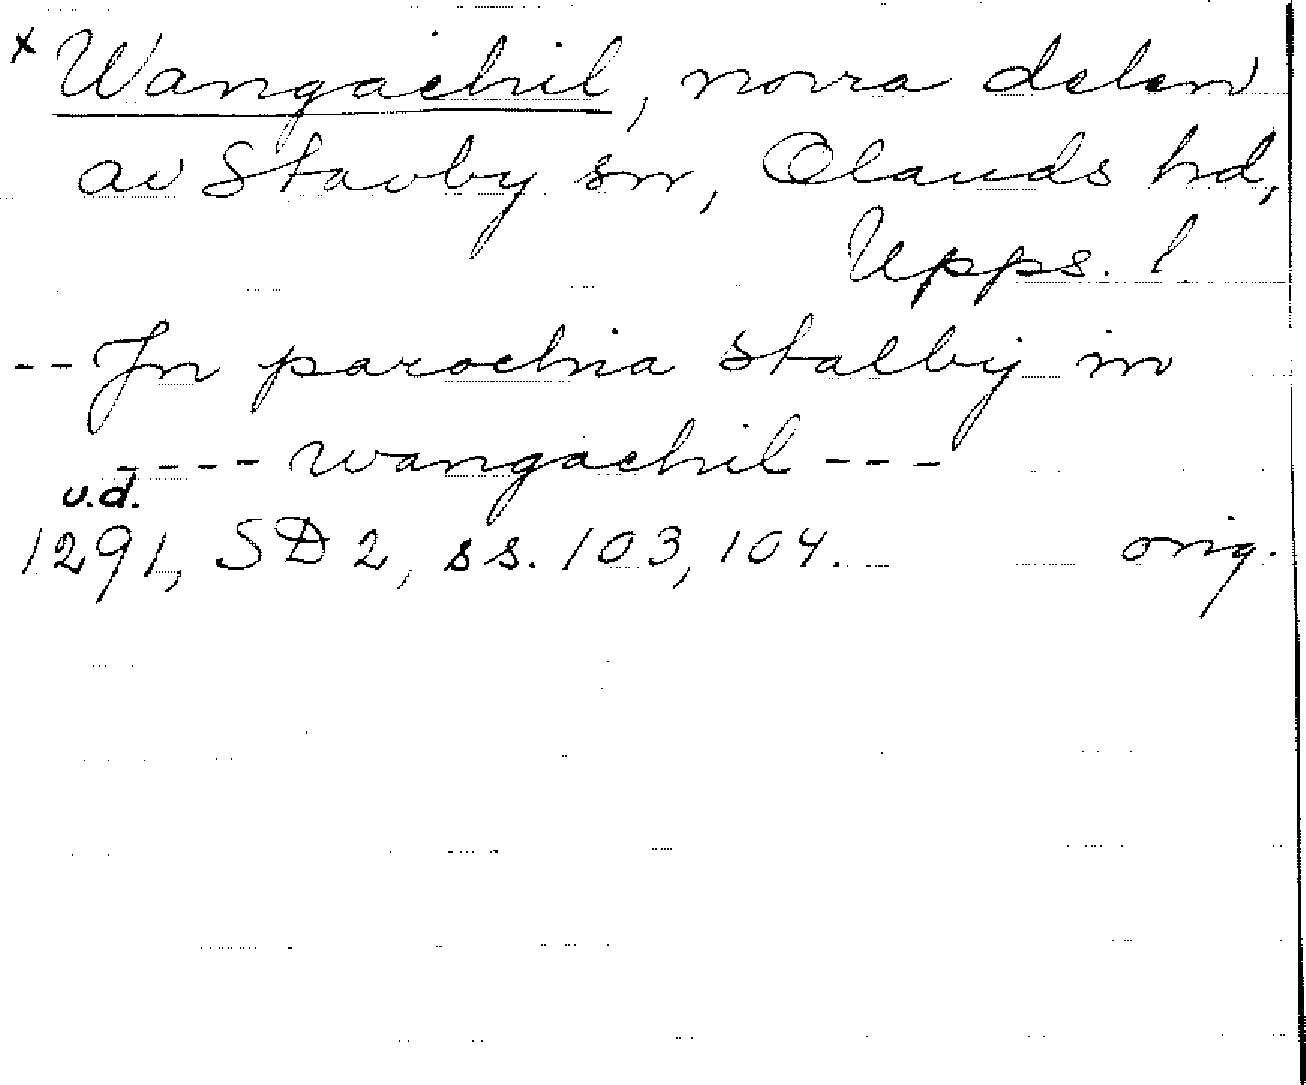 x Wangachil, norra delen
av Stavby sn, Olands hd,
Upps. l
-- Jn parochia stalby in
---- wangachil ---
u.d.
1291, SD 2, ss. 103, 104. orig.